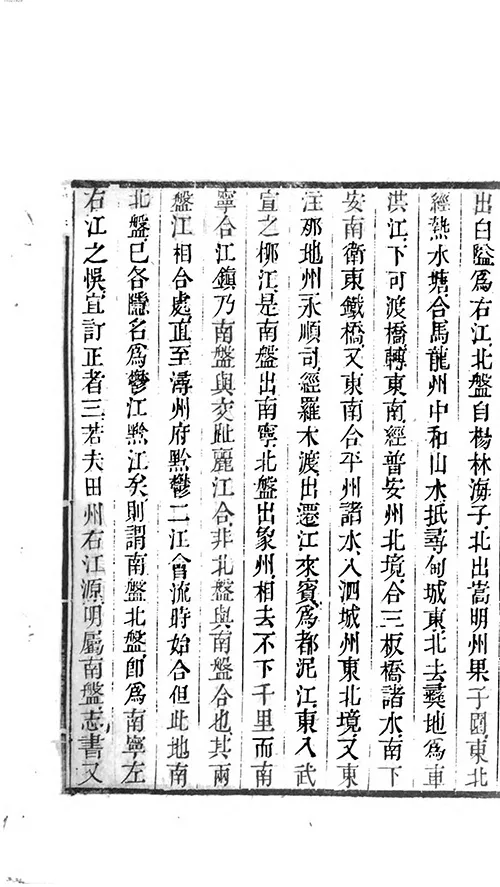 出白隘爲右江北盤自楊林海子北出嵩明州果子園東北
經熱水塘合馬龍州中和山水抵尋甸城東北去彝地爲車
洪江下可渡橋轉東南經普安州北境合三板橋諸水南下
安南衛東鐵橋又東南合平州諸水入泗城州東北境又東
注那地州永順司經羅木渡出遷江來賓爲都泥江東入武
宣之柳江是南盤出南寧北盤出象州相去不下千里而南
寧合江鎮乃南盤與交趾麗江合非北盤與南盤合也其兩
盤江相合處直至潯州府黔鬱二江會流時始合但此地南
北盤已各隱名爲鬱江黔江矣則謂南盤北盤卽爲南寧左
右江之悞宜訂正者三若夫田州右江源明屬南盤志書又